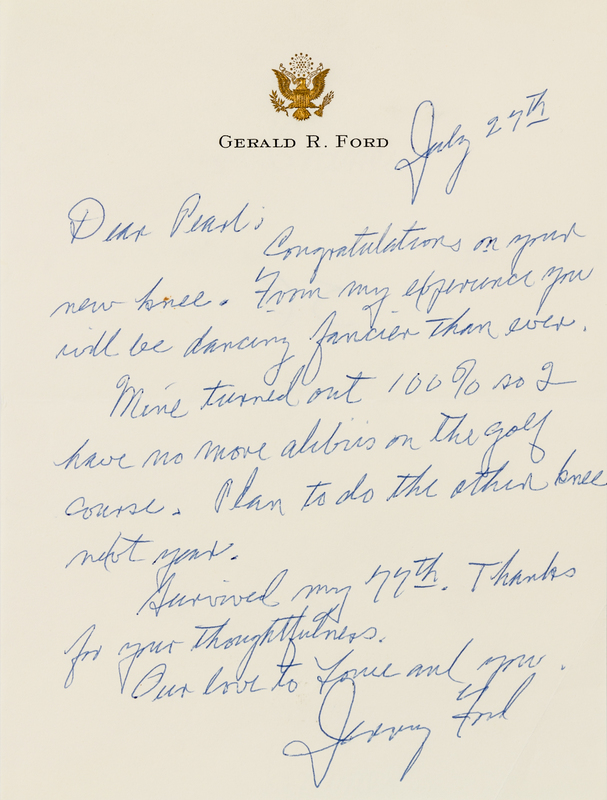 GERALD R. FORD
July 27th
Dear Pearl:
Congratulations on your
new knee. From my experience you
will be dancing fancier than ever.
Mine turned out 100% so I
have no more alibis on the golf
course. Plan to do the other knee
next year.
Survived my 77th. Thanks
for your thoughtfulness.
Our love to and you.
Jerry Ford